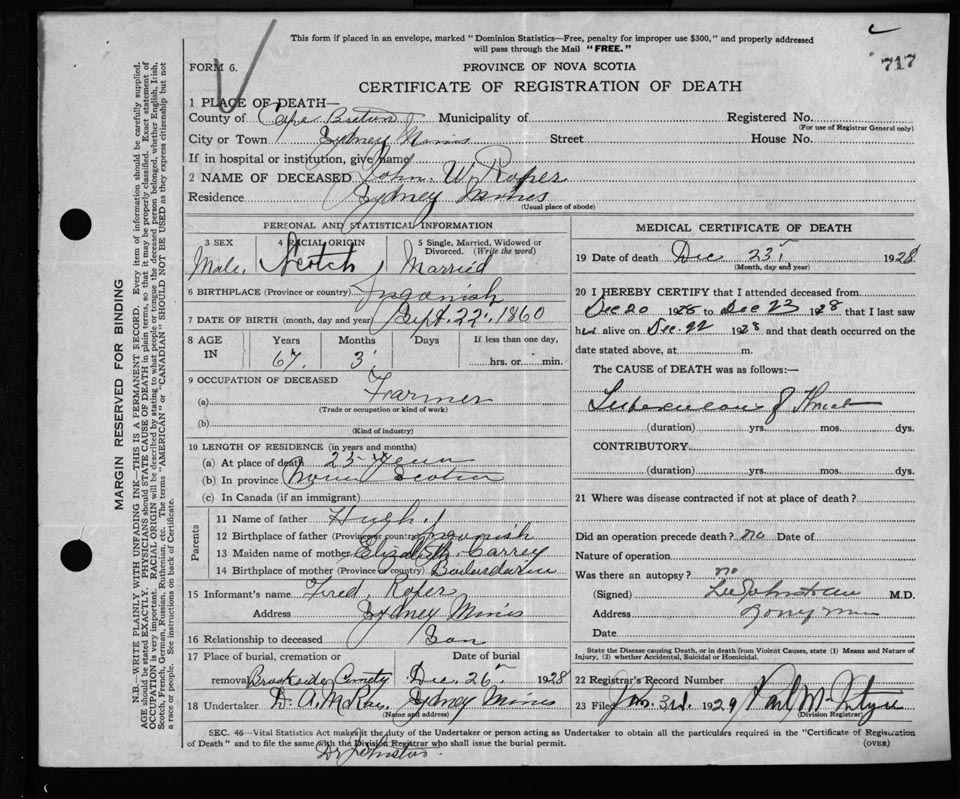 This form if placed in an envelope, marked "Dominion Statistics—Free, penalty for improper use $300," and properly addressed
will pass through the Mail "FREE."
717
FORM 6.
PROVINCE OF NOVA SCOTIA
CERTIFICATE OF REGISTRATION OF DEATH
1 PLACE OF DEATH—
County of Cape Breton Municipality of Registered No.
(For use of Registrar General only)
City or Town Sydney Mines Street House No.
If in hospital or institution, give name
2 NAME OF DECEASED John W. Roper
Residence Sydney Mines
(Usual place of abode)
PERSONAL AND STATISTICAL INFORMATION
3 SEX 4 RACIAL ORIGIN 5 Single, Married, Widowed or
Divorced. (Write the word)
Male Scotch Married
6 BIRTHPLACE (Province or country) Ingonish
7 DATE OF BIRTH (month, day and year) Sept. 22, 1860
8 AGE IN Years Months Days If less than one day,
67 3 hrs. or min.
9 OCCUPATION OF DECEASED
(a) Farmer
(Trade or occupation or kind of work)
(b)
(Kind of industry)
10 LENGTH OF RESIDENCE (in years and months)
(a) At place of death 25 Years
(b) In province Nova Scotia
(c) In Canada (if an immigrant)
Parents
11 Name of father Hugh
12 Birthplace of father (Province or country) Ingonish
13 Maiden name of mother Elizabeth Carrey
14 Birthplace of mother (Province or country)
15 Informant's name Fred. Roper
Address Sydney Mines
16 Relationship to deceased Son
17 Place of burial, cremation or Date of burial
removal Brookside Dec. 26 1928
18 Undertaker D. A. McRae, Sydney Mines
(Name and address)
MEDICAL CERTIFICATE OF DEATH
19 Date of death Dec 23 1928
(Month, day and year)
20 I HEREBY CERTIFY that I attended deceased from
Dec 20 1928 to Dec 23 1928 that I last saw
him alive on Dec. 22 1928 and that death occurred on the
date stated above, at m.
The CAUSE OF DEATH was as follows:—
Tuberculosis of Throat
(duration) yrs. mos. dys.
CONTRIBUTORY
(duration) yrs. mos. dys.
21 Where was disease contracted if not at place of death?
Did an operation precede death? no Date of
Nature of operation
Was there an autopsy? no
(Signed) M.D.
Address
Date
State the Disease causing Death, or in death from Violent Causes, state (1) Means and Nature of
Injury, (2) whether Accidental, Suicidal or Homicidal.
22 Registrar's Record Number
23 Filed Jan. 3rd 1929
(Division Registrar)
SEC. 46—Vital Statistics Act makes it the duty of the Undertaker or person acting as Undertaker to obtain all the particulars required in the "Certificate of Registration
of Death" and to file the same with the Division Registrar who shall issue the burial permit.
(OVER)
Dr Johnston
MARGIN RESERVED FOR BINDING
N.B.—WRITE PLAINLY WITH UNFADING INK—THIS IS A PERMANENT RECORD. Every item of information should be carefully supplied.
AGE should be stated EXACTLY. PHYSICIANS should STATE CAUSE OF DEATH in plain terms, so that it may be properly classified. Exact statement of
OCCUPATION is very important. RACIAL ORIGIN will be described by stating to what people or tongue the deceased person belonged, whether English, Irish,
Scotch, French, German, Russian, Ruthenian, etc. The terms "AMERICAN" or "CANADIAN" SHOULD NOT BE USED as they express citizenship but not
a race or people. See instructions on back of Certificate.